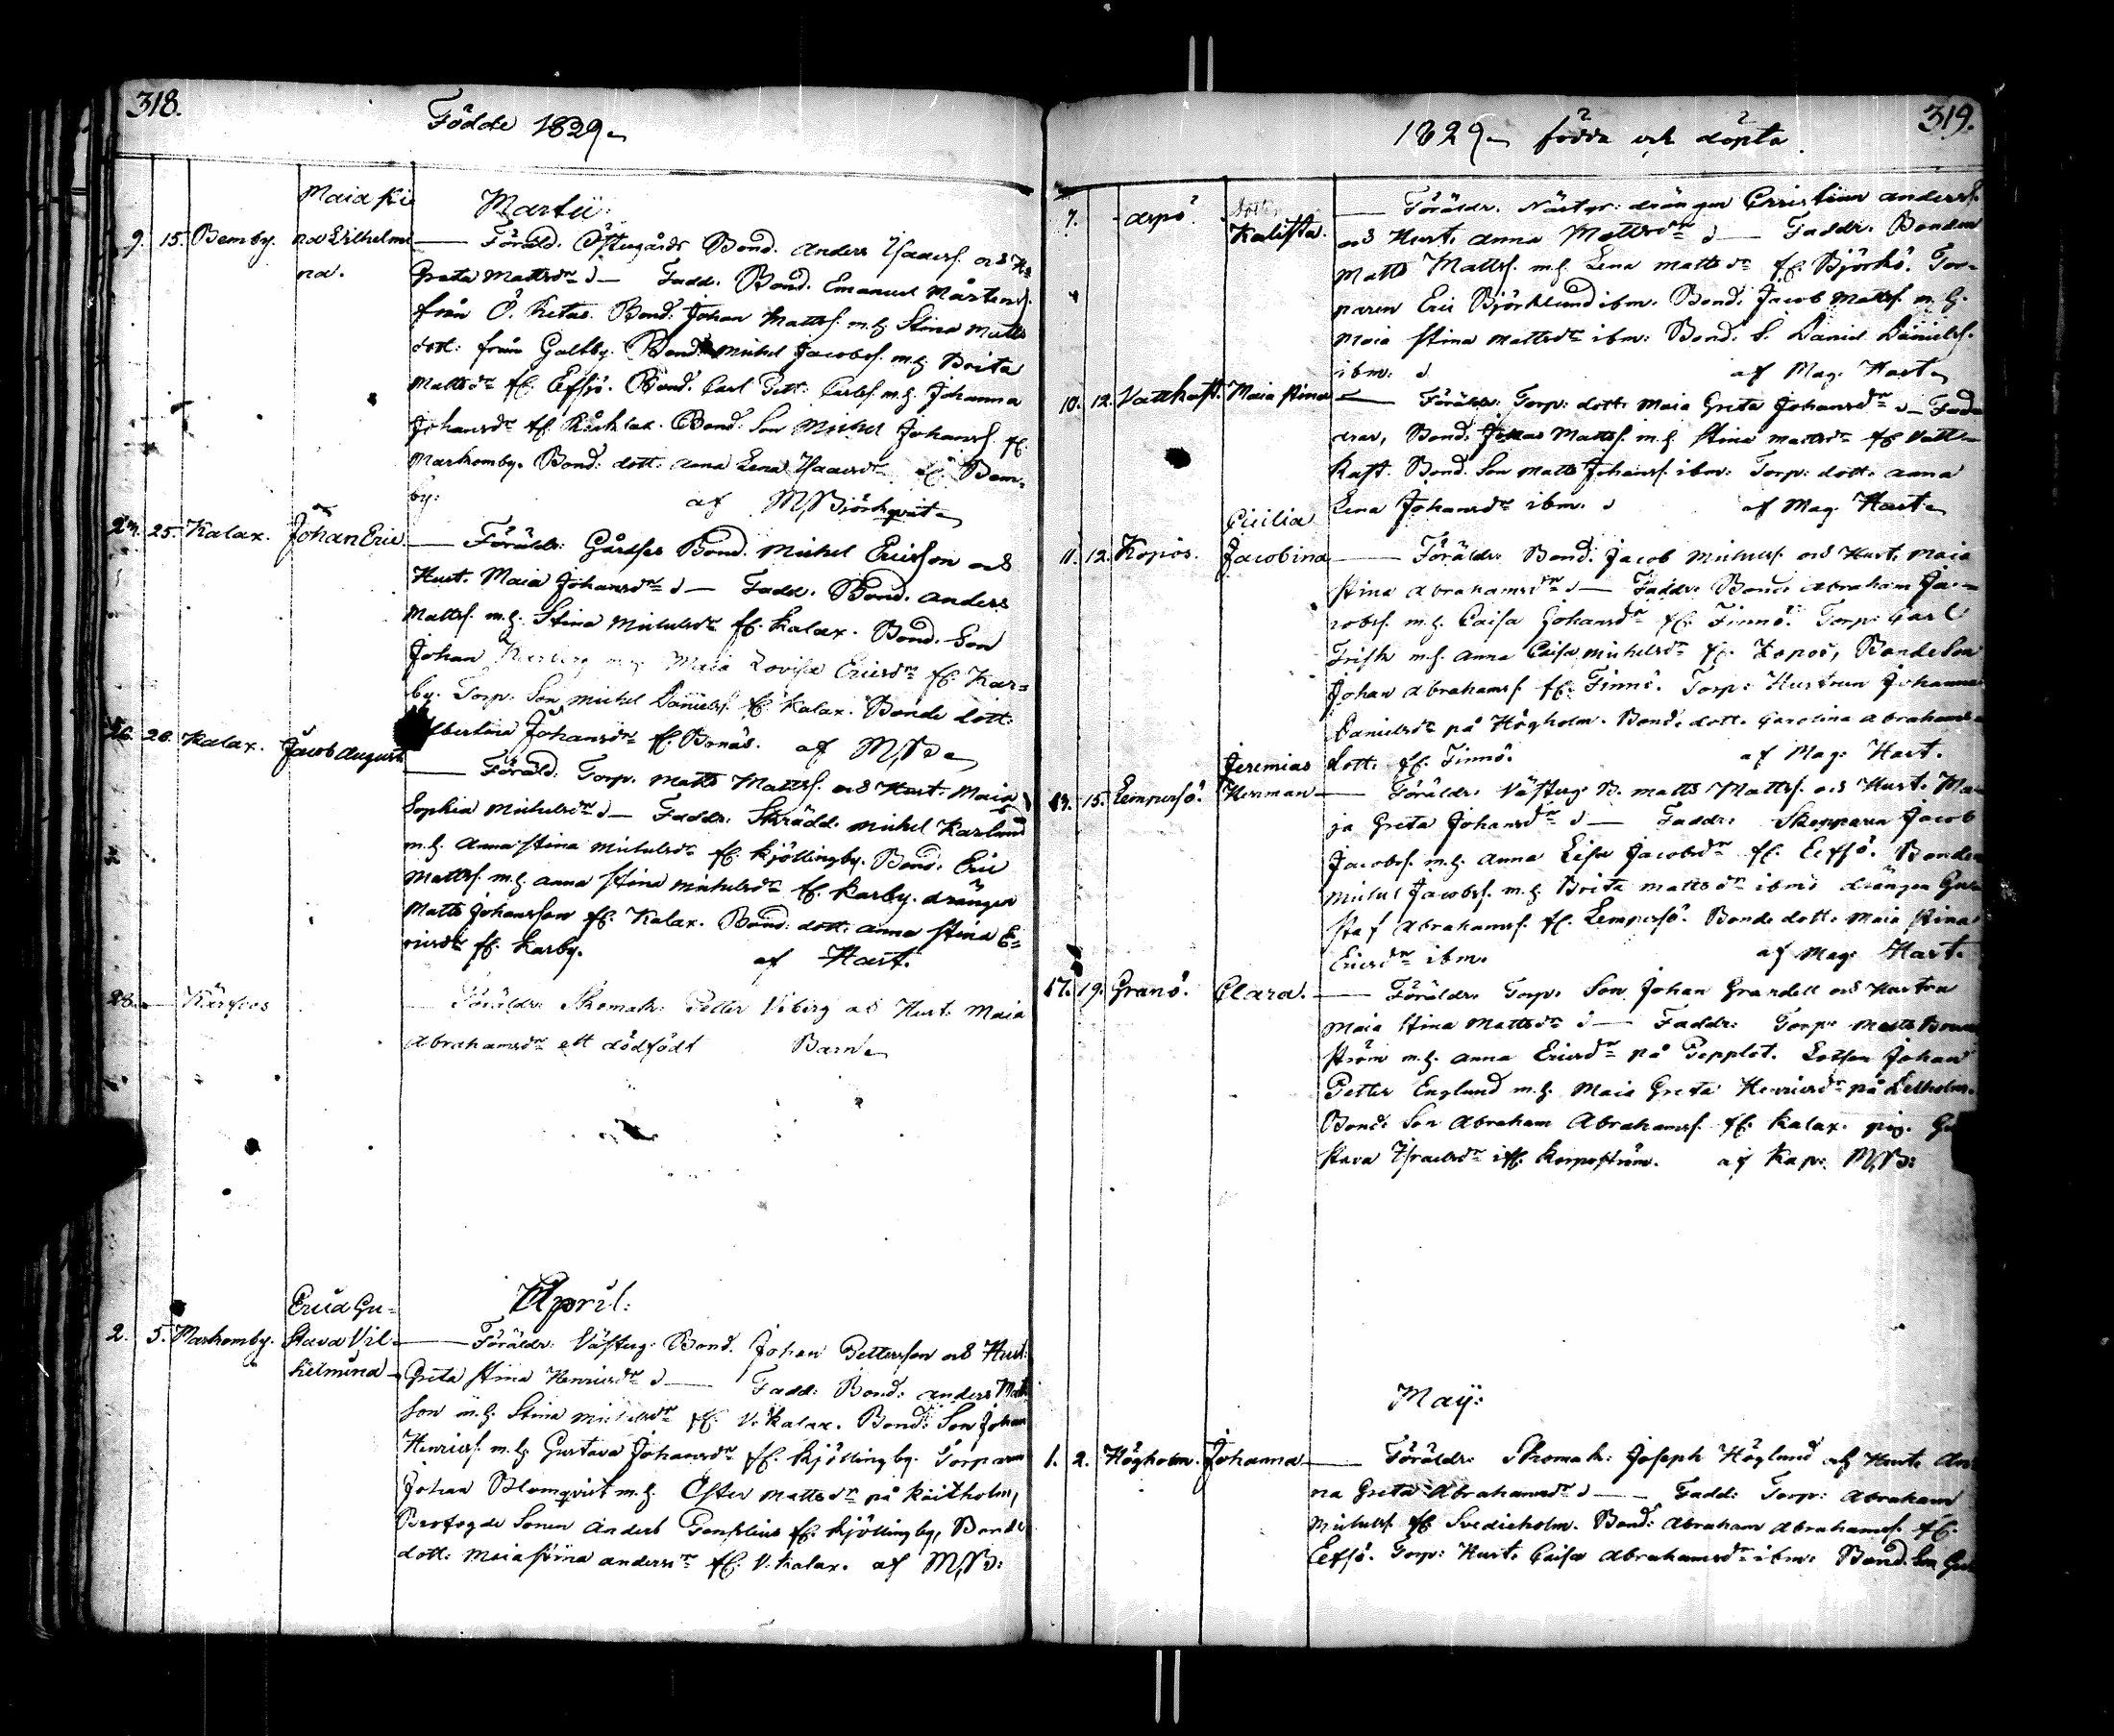 318.
Födde 1829
Martii:
Maia Ki
9. 15. Bemby. na Vilhelmi — Föräld. Östergårds Bond. Anders Isaacss. och H.
na. Greta Mattsdr — Fadd. Bond. Emanuel Mårtenss.
från Ö. Retais. Bond. Johan Mattss. m.h. Stina Matts
dott: från Galtby. Bond. Michel Jacobss. m.h. Brita
Mattsdr fr. Eefsjö. Bond. Carl Pett: Carlss. m.h. Johanna
Johansdr fr. Råsklax. Bond. Son Michel Johanss. fr.
Markomby. Bond: dott: Anna Lena Isaacsdr fr. Bem=
by: af M. Björkqvist
24. 25. Kalax. Johan Eric — Föräldr: Gårdses Bond. Michel Ericsson och
Hust. Maia Johansdr — Fadd. Bond. Anders
Mattss. m.h. Stina Michelsdr fr. Kalax. Bond. Son
Johan m.h. Maia Lovisa Ericsdr fr. Kar=
by. Torp: Son Michel Daniels. fr. Kalax. Bonde dott:
Albertina Johansdr fr. Bonäs. af M. B.
26. 26. Kalax. Jacob August
— Föräld: Torp. Matts Mattss. och Hust. Maia
Sophia Michelsdr — Faddr. Skrädd. Michel Karlund
m.h. Anna Stina Michelsdr fr. Kjöttingby. Bond. Eric
Mattss. m.h. Anna Stina Michelsdr fr. Karby. drängen
Matts Johansson fr. Kalax. Bond: dott: Anna Stina E=
ricsdr fr. Karby. af Hast.
28. — Föräldr: Skomakr: Petter Viberg och Hust. Maia
Abrahamsdr ett dödfödt Barn
April:
Erica Gu=
2. 5. Markomby. stava Vil= — Föräldr: Västerg. Bond. Johan Pettersson och Hust:
helmina — Greta Stina Henricsdr — Fadd: Bond: Anders Mat
son m.h. Stina Michelsdr fr. V. Kalax. Bond: Son Johan
Henricss. m.h. Gustava Johansdr fr. Kjöttingby. Torparen
Johan Blomqvist m.h. Ester Mattsdr på Kaitholm,
Brofogde Sonen Anders fr. Kjöttingby, Bonde
dott: Maia Stina Andersdr fr. V. Kalax. af M. B:
319.
1829 födda och döpta.
7. Aspö. Kalista. — Föräldr. drängen Christian Anderss.
och Hust. Anna Mattsdr — Faddr. Bonden
Matts Mattss. m.h. Lena Mattsdr fr. Björkö. Tor-
paren Eric Björklund ibm. Bond: Jacob Mattss. m.h.
Maia Stina Mattsdr ibm: Bond: S. Daniel Danielss.
ibm: af Mag. Hast
10. 12. Vattkast. Maia Stina — Föräldr: Torp: dott: Maia Greta Johansdr — Fad
drar, Bond: Johan Mattss. m.h. Stina Mattsdr fr. Vatt=
kast. Bond. Son Matts Johanss. ibm: Torp: dott: Anna
Lena Johansdr ibm. af Mag. Hast
Cicilia
11. 12. Kopös. Jacobina — Föräldr: Bond: Jacob Michelss. och Hust. Maia
Stina Abrahamsdr — Faddr. Bond: Abraham Ja=
cobss. m.h. Caisa Johansdr fr. Finnö. Torp: Carl
Frisk m.h. Anna Caisa Michelsdr fr. Kopös, Bonde Son
Johan Abrahamss. fr. Finnö. Torp: Hustrun Johanna
Danielsdr på Högholm. Bond: dott. Carolina Abrahams=
dott. fr. Finnö. af Mag: Hast.
Jeremias
13. 15. Lempersö. Herman — Föräldr. Västerg. B. Matts Mattss. och Hust. Ma=
ja Greta Johansdr — Faddr: Skepparen Jacob
Jacobss. m.h. Anna Lisa Jacobsdr fr. Eefsö. Bonden
Michel Jacobss. m.h. Brita Mattsdr ibm: drängen Gu
staf Abrahamss. fr. Lempersö. Bonde dott. Maia Stina
Ericsdr ibm. af Mag: Hast.
17. 19. Granö. Clara. — Föräldr. Torp. Son Johan Grandell och Hustru
Maia Stina Mattsdr — Faddr: Torp: Matts
ström m.h. Anna Ericsdr på Pepplot. Lotsen Johan
Petter Englund m.h. Maia Greta Henricsdr på Lelholm.
Bond: Son Abraham Abrahamss. fr. Kalax. pig. Gu
stava Israelsdr fr. Korpoström. af Kap: M. B:
Maij:
1. 2. Högholm. Johanna — Föräldr: Skomak: Joseph Höglund och Hust. An
na Greta Abrahamsdr — Fadd: Torp: Abraham
Michelss. fr. Svedieholm. Bond: Abraham Abrahamss. fr.
Eefsö. Torp: Hust. Caisa Abrahamsdr ibm: Bond. Son Gu